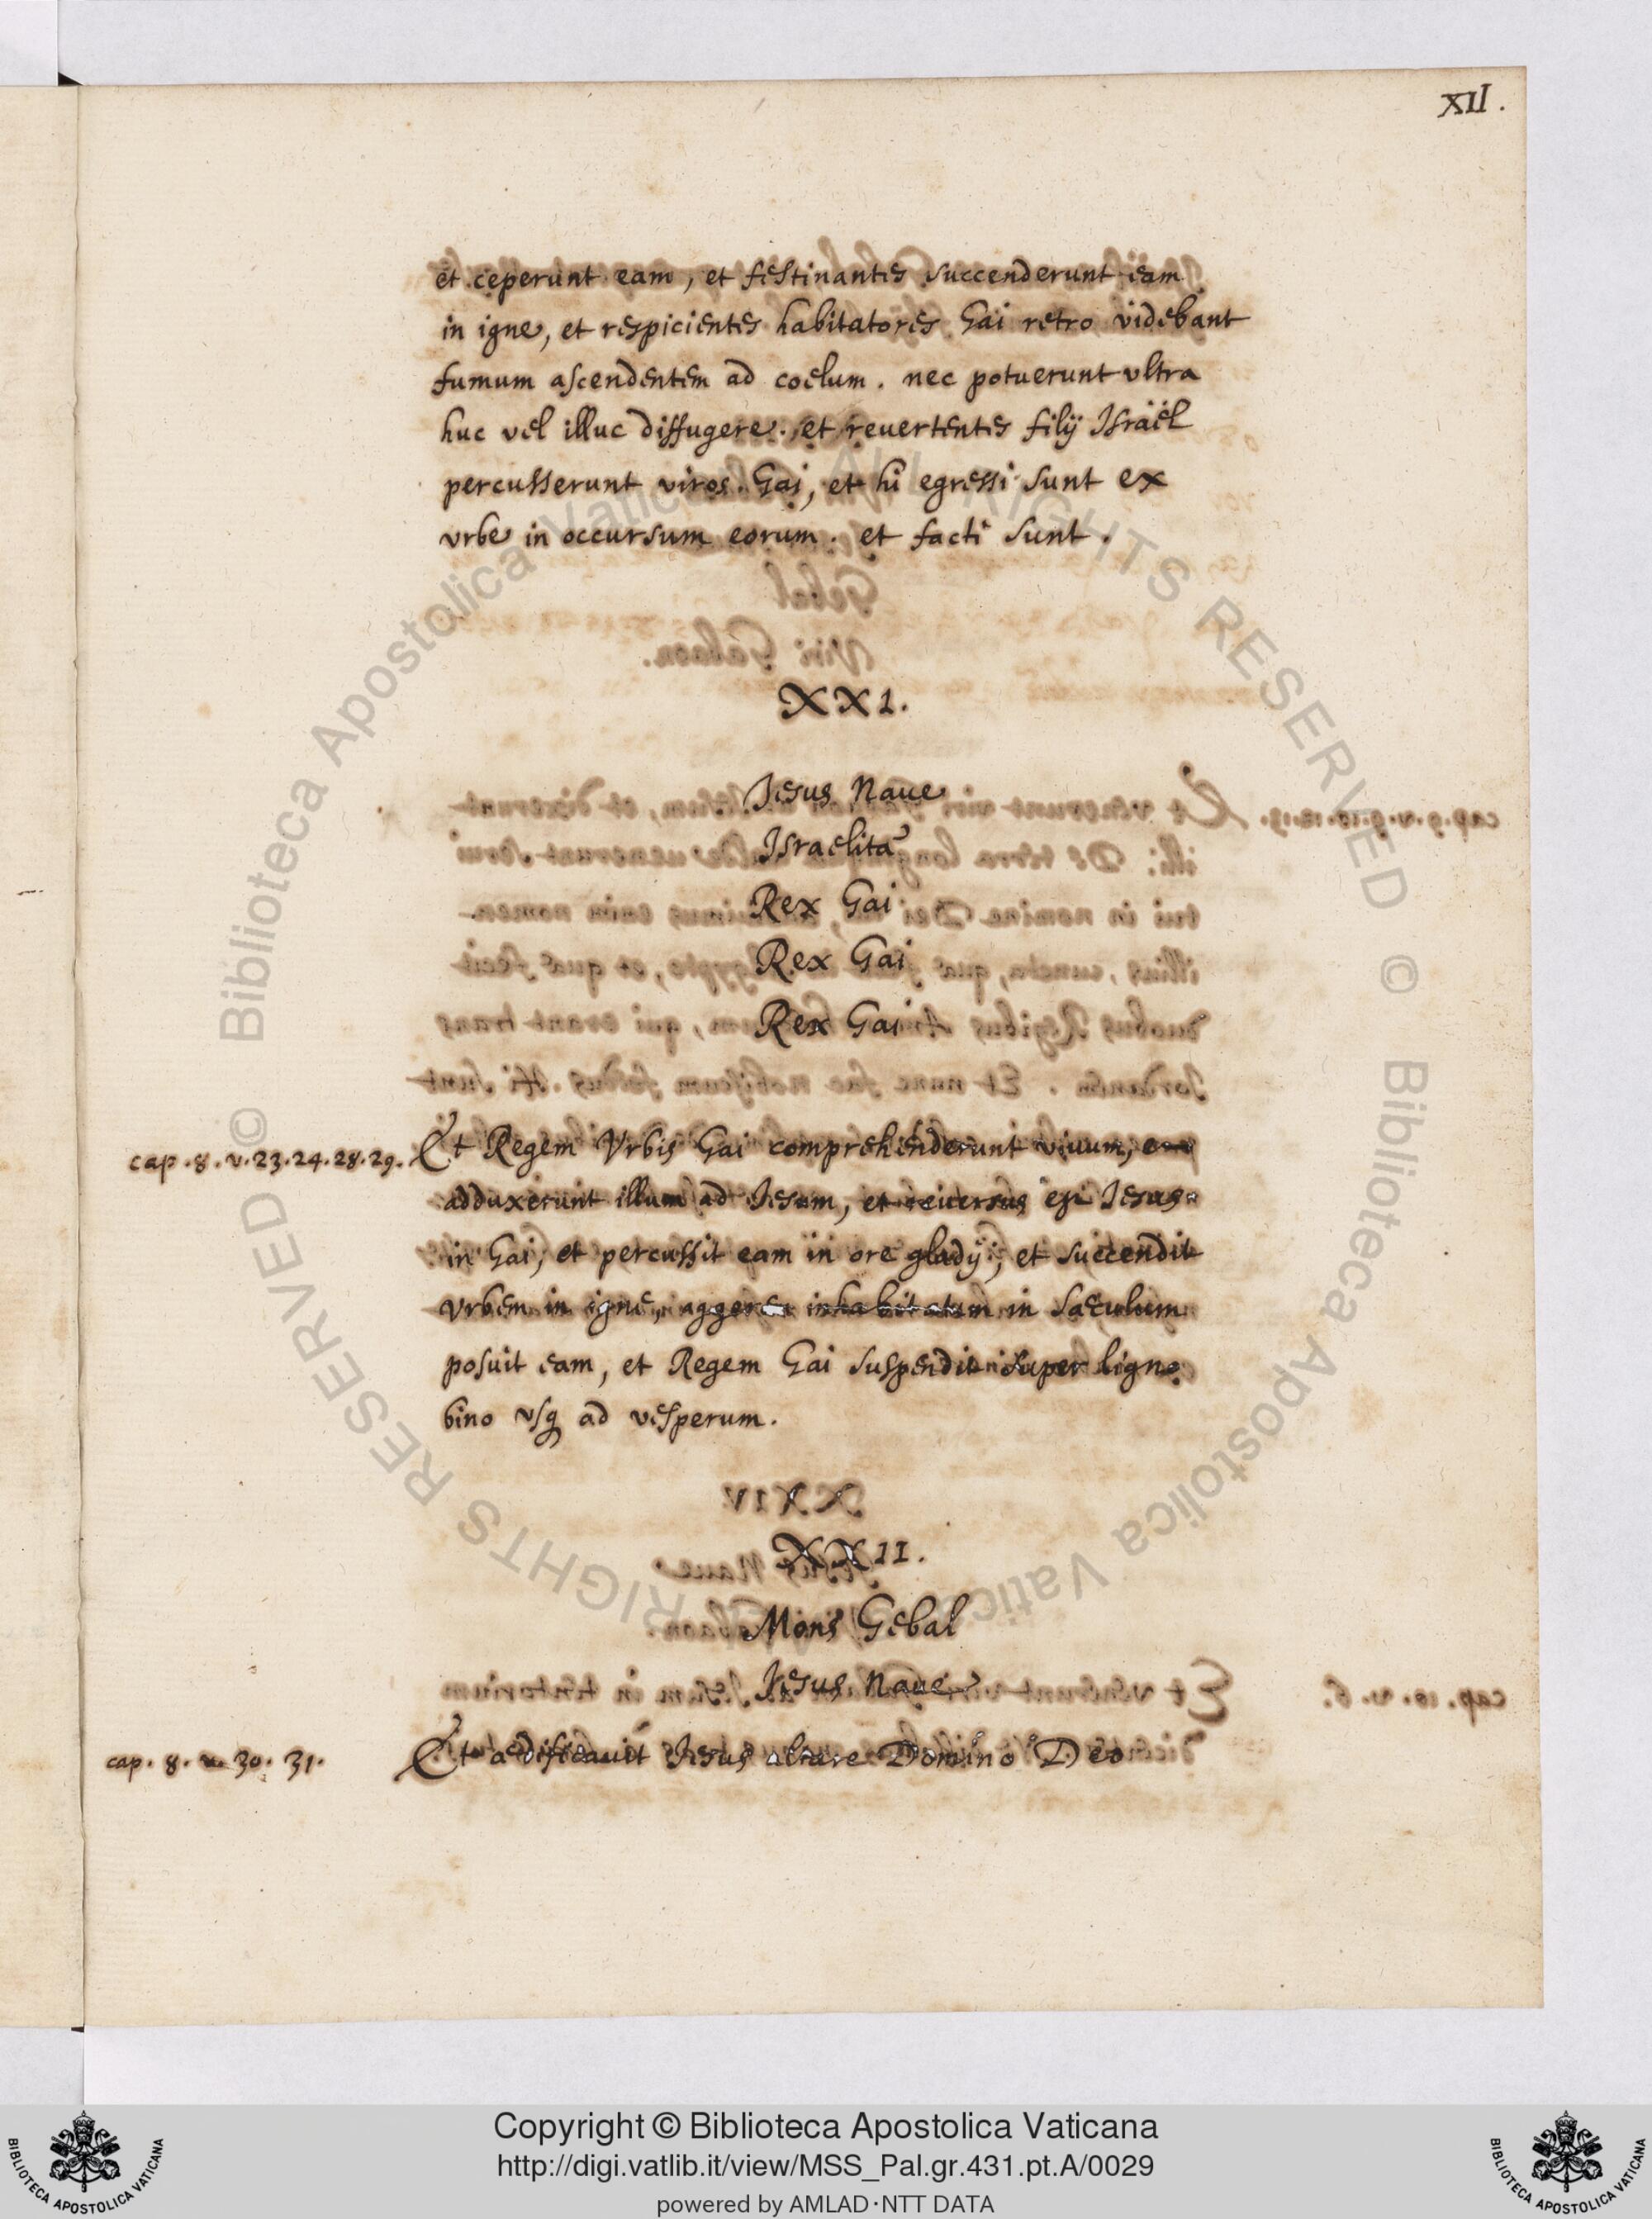 XII.
et ceperunt eam, et festinantes succenderunt eam
in igne, et respicientes habitatores Gai retro videbant
fumum ascendentem ad coelum. nec potuerunt vltra
huc vel illuc diffugere. et reuertentes filij Israël
percusserunt viros Gai, et hi egressi sunt ex
vrbe in occursum eorum. et facti sunt.
XXI.
Jesus Naue
Israelita
Rex Gai
Rex Gai
Rex Gai
cap. 8. v. 23. 24. 28. 29.
Et Regem Vrbis Gai comprehenderunt viuum,
adduxerunt illum ad Jesum, et reuersus est Jesus
in Gai, et percussit eam in ore gladij, et succendit
vrbem in igne, inhabitatam in saeculum
posuit eam, et Regem Gai suspendit super ligno
bino vsq ad vesperum.
XXII.
Mons Gebal
Jesus Naue
cap. 8. v. 30. 31.
Et aedificauit Jesus altare Domino Deo
Copyright © Biblioteca Apostolica Vaticana
http://digi.vatlib.it/view/MSS_Pal.gr.431.pt.A/0029
powered by AMLAD·NTT DATA